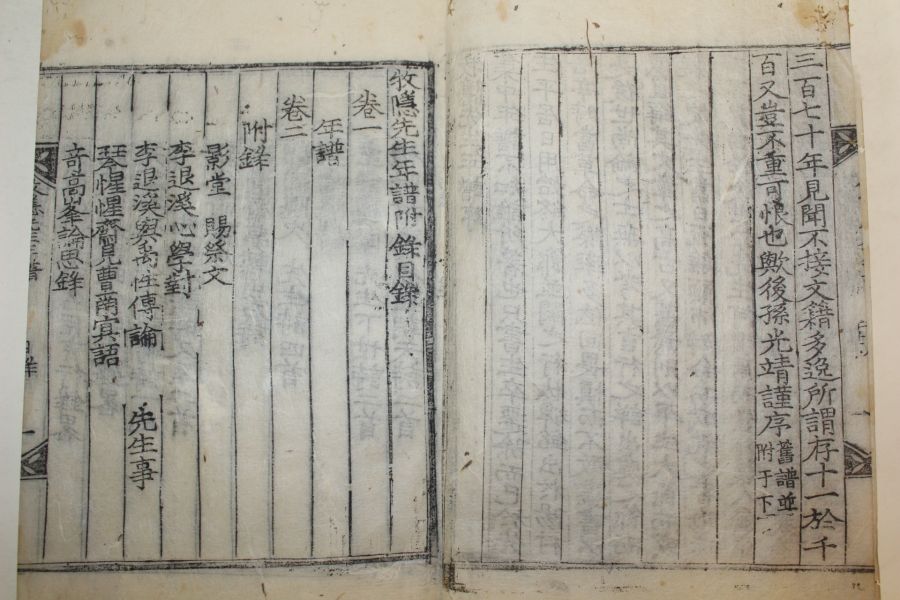 三百七十年見聞不接文籍多逸所謂存十一於千
百又豈不重可恨也歟後孫光靖謹序舊譜並附于下
牧隱先生年譜附錄目錄
卷一
年譜
卷二
附錄
影堂 賜祭文
李退溪心學對
李退溪與禹性傳論 先生事
琴惺惺齋見曺南冥語
奇高峯論思錄